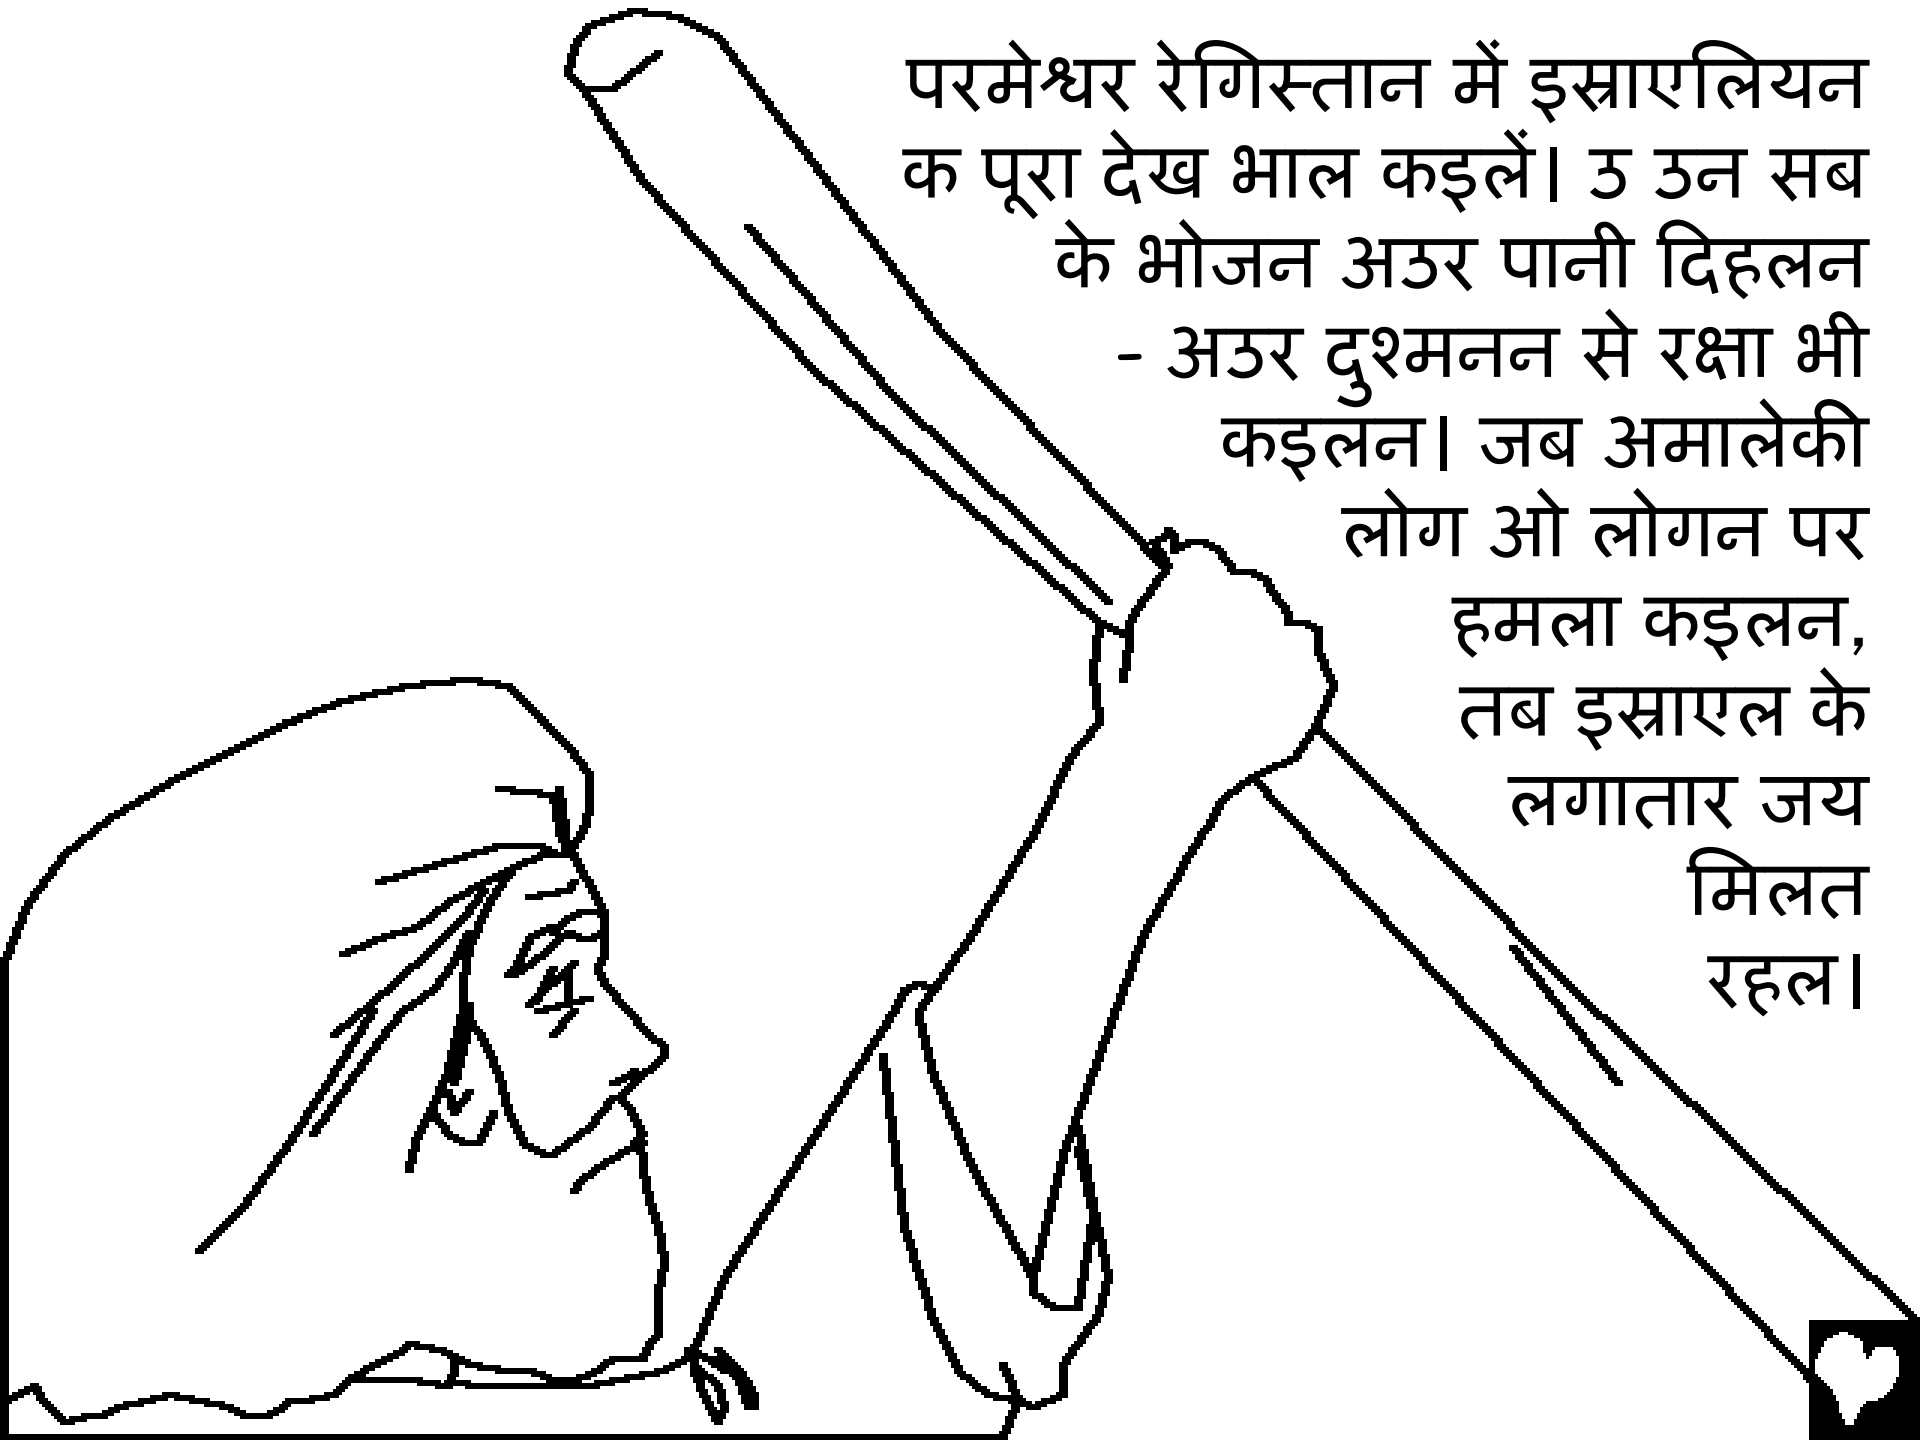 परमेश्वर रेगिस्तान में इस्राएलियन
क पूरा देख भाल कइलें। उ उन सब
के भोजन अउर पानी दिहलन
- अउर दुश्मनन से रक्षा भी
कइलन। जब अमालेकी
लोग ओ लोगन पर
हमला कइलन,
तब इस्राएल के
लगातार जय
मिलत
रहल।